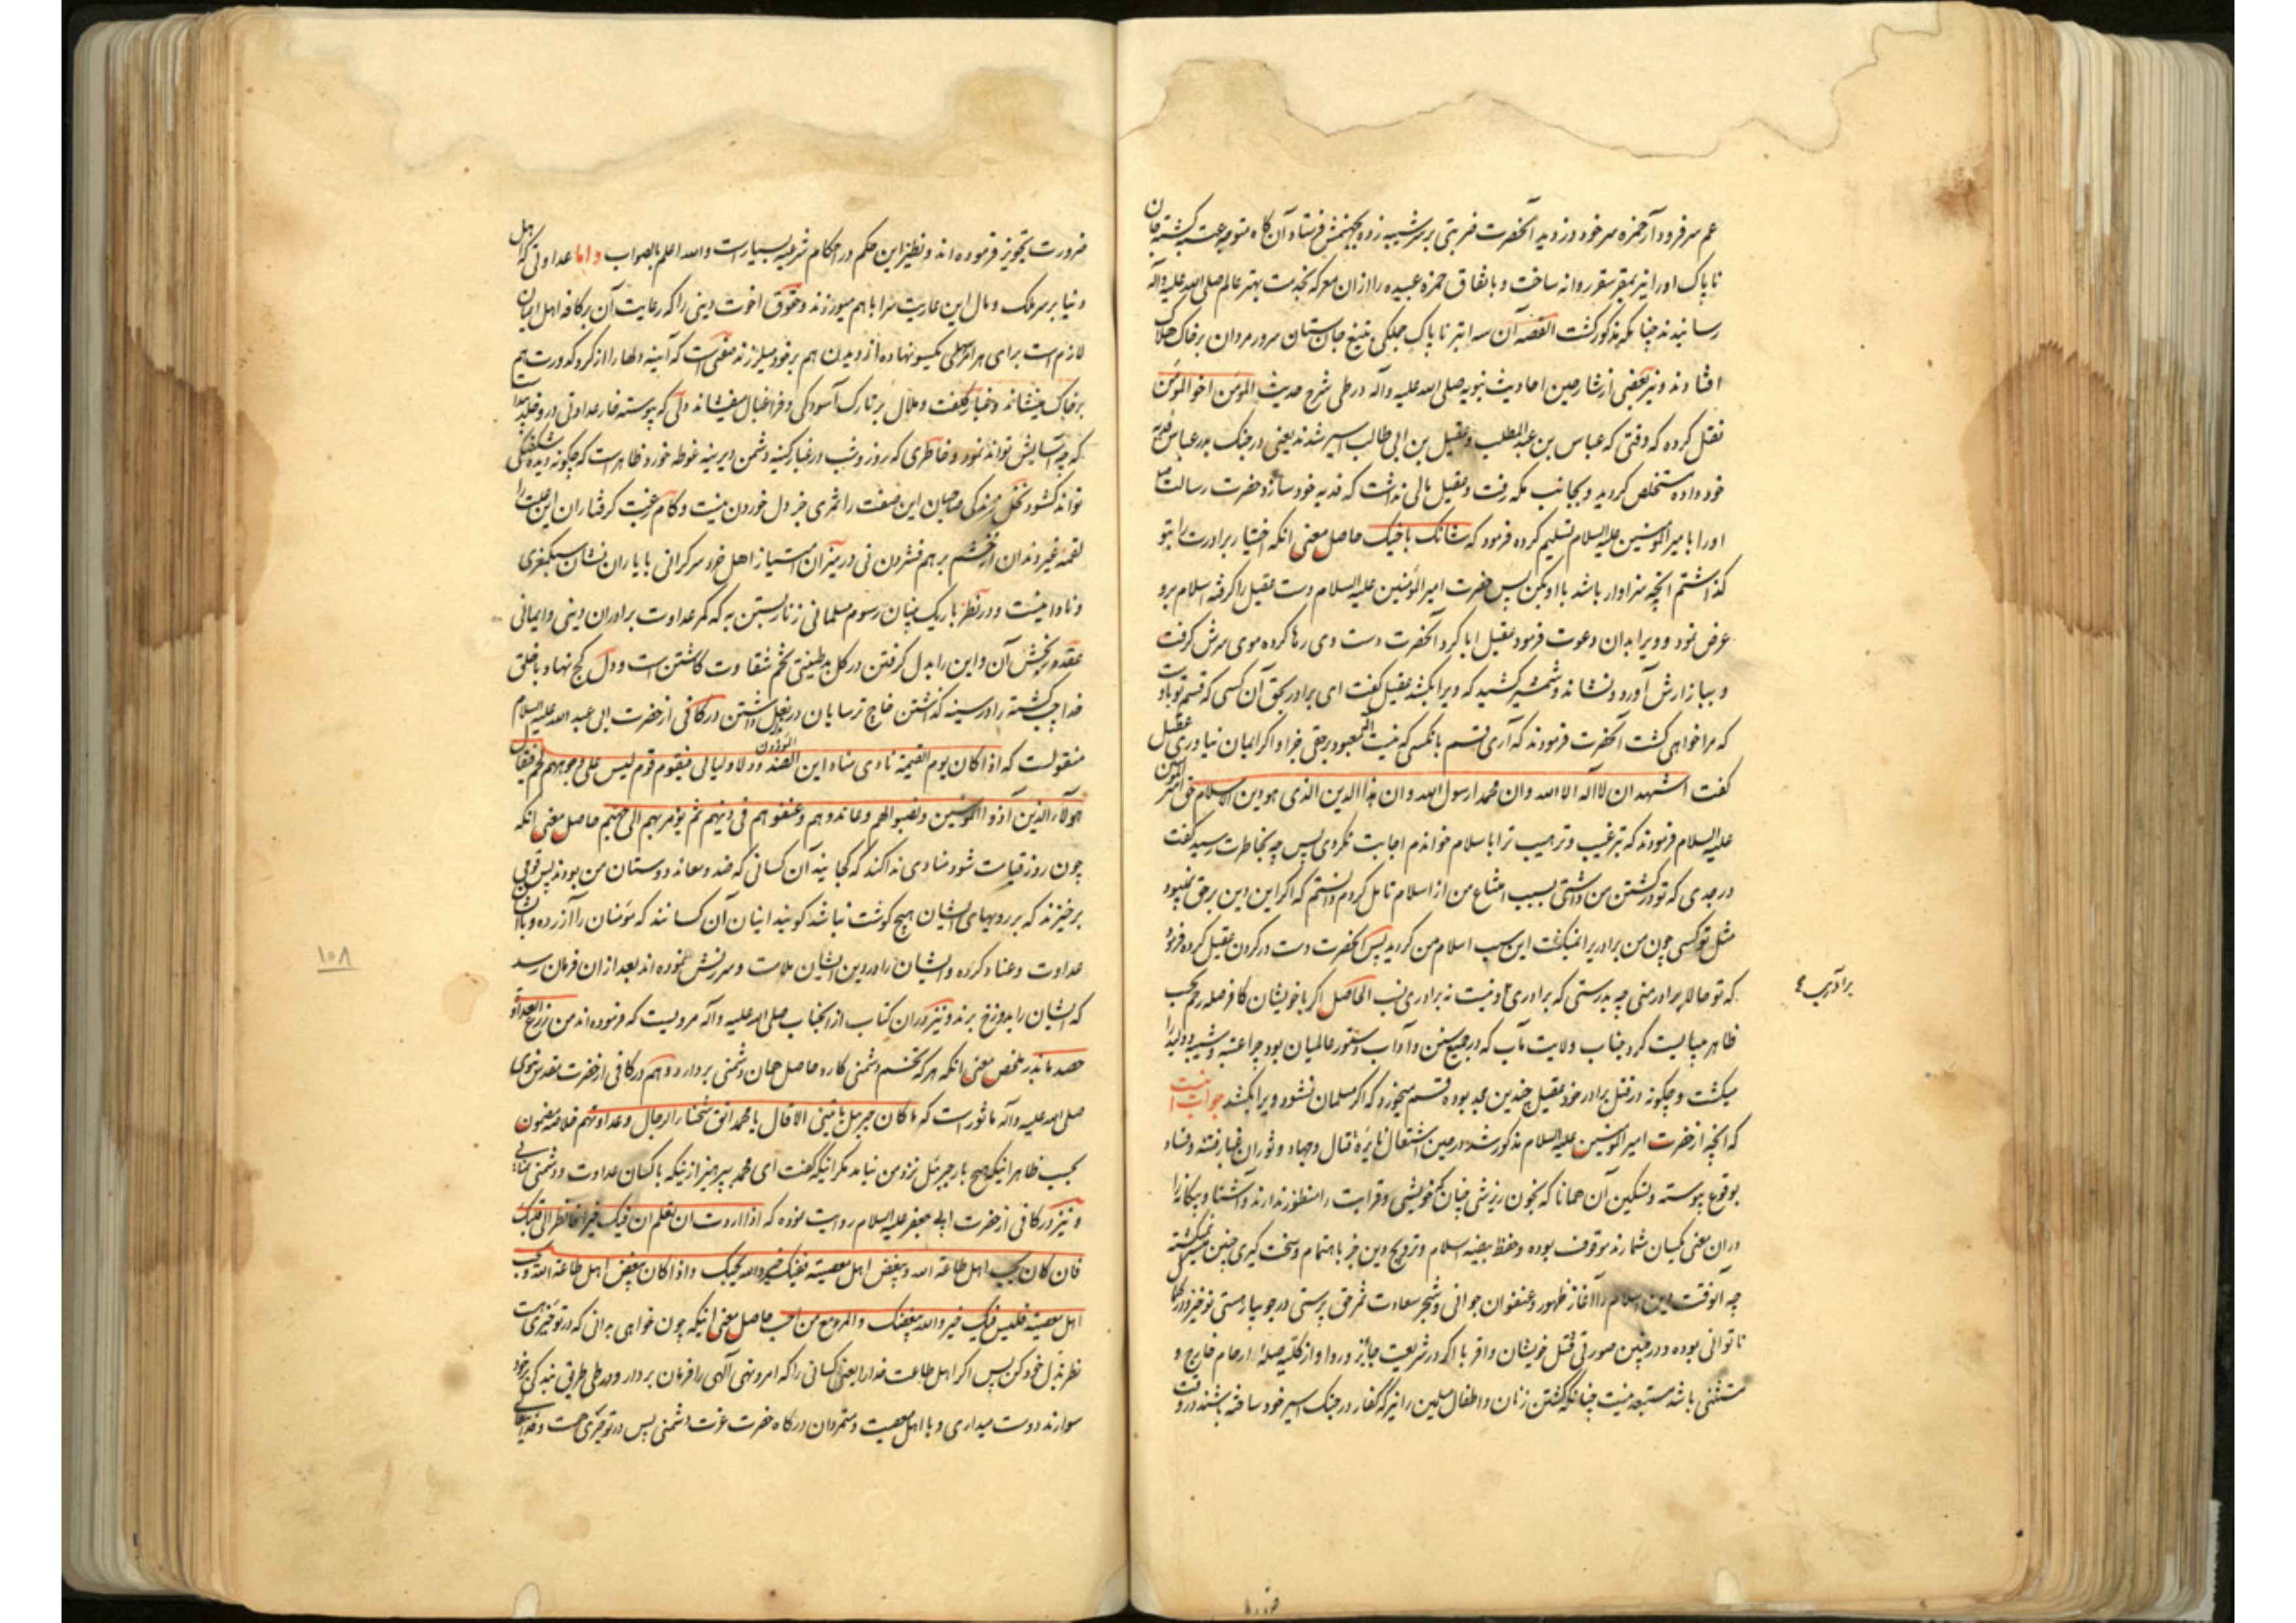 عم سر فرود آر حمزه سر خود دزدید آنحضرت ضربتی بر سر شیبه زده بجهنمش فرستاد و آن گاه متوجه عتبه گشته جان
ناپاک او را نیز بمقر سقر روانه ساخت و باتفاق حمزه عبیده را از ان معرکه بخدمت بهتر عالم صلی الله علیه وآله
رسانیدند چنانکه مذکور گشت القصه آن سه ابتر ناپاک جملگی بتیغ جان ستان سرور مردان بر خاک هلاک
افتادند و نیز بعضی از شارحین احادیث نبویه صلی الله علیه وآله در طی شرح حدیث المؤمن اخو المؤمن
نقل کرده که وقتی که عباس بن عبد المطلب و عقیل بن ابی طالب اسیر شدند یعنی در جنک بدر عباس فدیه
خود داده مستخلص کردید و بجانب مکه رفت و عقیل مالی نداشت که فدیه خود سازد حضرت رسالت
او را با میر المؤمنین علیه السلام تسلیم کرده فرمود که شانک باخیک حاصل معنی انکه اختیار برادرت را بتو
گذاشتم انچه سزاوار باشد با او بکن پس حضرت امیر المؤمنین علیه السلام دست عقیل را گرفته اسلام برو
عرض نمود و ویرا بدان دعوت فرمود عقیل ابا کرد آنحضرت دست وی رها کرده موی سرش گرفت
و ببازارش آورد و نشاند و شمشیر کشید که ویرا بکشد عقیل گفت ای برادر بحق آن کسی که قسم تو باوست
که مرا خواهی کشت آنحضرت فرمودند که آری قسم بانکسی که نیست معبود بحق جز او اگر ایمان نیاوری عقیل
گفت اشهد ان لا اله الا الله وان محمد رسول الله وان هذا الدین الذی هو دین الاسلام حق امیر المؤمنین
علیه السلام فرمودند که بترغیب و ترهیب ترا باسلام خواندم اجابت نکردی پس چه بخاطرت رسید گفت
در جدی که تو در کشتن من داشتی بسبب امتناع من از اسلام تامل کردم دانستم که اگر این دین بر حق نمیبود
مثل تو کسی چون من برادر را نمیکشت این سبب اسلام من کردید پس آنحضرت دست در کردن عقیل کرده فرمود
که تو حالا برادر منی چه بدرستی که برادری دینست نه برادری نسب الحاصل اگر با خویشان کافر صله رحم بحسب
ظاهر میبایست کرد جناب ولایت مآب که در جمیع سنن و آداب دستور عالمیان بود چرا عتبه و شیبه و ولید را
میکشت و چگونه در قتل برادر خود عقیل چندین مجد بوده قسم میخورد که اگر مسلمان نشود ویرا بکشد جواب انست
که انچه از حضرت امیر المؤمنین علیه السلام مذکور شد در حین اشتعال نایره قتال و جهاد و ثوران غبار فتنه و فساد
بوقوع پیوسته و تسکین آن همانا که بخون ریزشی چنان که خویشی و قرابت را منظور ندارند و آشنا و بیگانه را
در ان معنی یکسان شمارند موقوف بوده و حفظ بیضه اسلام و ترویج دین جز باهتمام و سخت گیری چنین متمشی نمیگشته
چه آنوقت دین اسلام را آغاز ظهور و عنفوان جوانی و شجر سعادت ثمر حق پرستی در جویبار هستی نوخیز و در
ناتوانی بوده و در چنین صورتی قتل خویشان و اقربا اگر در شریعت جایز و روا و از کلیه صله ارحام خارج و
مستثنی باشد مستبعد نیست چنانکه کشتن زنان و اطفال مسلمین را نیز که کفار در جنک اسیر خود ساخته باشند در وقت
ضرورت تجویز فرموده اند و نظیر این حکم در احکام شرعیه بسیارست والله اعلم بالصواب و اما عداوتی که اهل
دنیا بر سر ملک و مال این عاریت سرا با هم میورزند و حقوق اخوت دینی را که رعایت آن بر کافه اهل ایمان
لازم است برای هر امر سهلی یکسو نهاده از دیدن هم بر خود میلرزند صفتی است که آینه دلها را از گرد کدورت هم
بر خاک مینشاند و غبار کلفت و ملال بر تارک آسودگی و فراغبال میفشاند دلی که پیوسته خار عداوتی درو خلیده
که چه آسایش تواند نمود و خاطری که روز و شب در غبار کینه دشمن دیرینه غوطه خورد ظاهرست که چگونه دیده شکفتگی
تواند کشود نخل زندگی صاحبان این صفت را ثمری جز دل خوردن نیست و کام رغبت گرفتاران این را
لقمه غیر دندان از خشم بر هم فشردن نی در میزان امتیاز اهل خرد سرگرانی با یاران نشان سبکمغزی
و نادانیست و در نظر باریک بینان رسوم مسلمانی زنار بستن به که کمر عداوت برادران دینی و ایمانی
عقده رنجش آن و این را بدل گرفتن در گل بد طینتی تخم شقاوت کاشتن است و دل کج نهاد با خلق
خدا چپ گشته را در سینه گذاشتن خاج ترسایان در بغل داشتن در کافی از حضرت ابی عبد الله علیه السلام
منقولست که اذا کان یوم القیمة نادی مناد این الصدود لاولیائی فیقوم قوم لیس علی وجوههم لحم فیقال
هولاء الذین آذوا المؤمنین ونصبوا لهم وعاندوهم وعنفوهم فی دینهم ثم یؤمر بهم الی جهنم حاصل معنی انکه
چون روز قیامت شود منادی ندا کند که کجایند آن کسانی که ضد و معاند دوستان من بودند پس قومی
برخیزند که بر رویهای ایشان هیچ گوشت نباشد گویند اینان آن کسانند که مؤمنان را آزرده و با ایشان
عداوت و عناد کرده و ایشان را در دین ایشان ملامت و سرزنش نموده اند بعد از ان فرمان رسد
که ایشان را بدوزخ برند و نیز در ان کتاب از انجناب صلی الله علیه وآله مرویست که فرموده اند من زرع العداوة
حصد ما بذر ملخص معنی انکه هر که تخم دشمنی کارد حاصل همان دشمنی بردارد و هم در کافی از حضرت مقدس نبوی
صلی الله علیه وآله ماثورست که ما کان جبریل یاتینی الا قال یا محمد اتق شحناء الرجال وعداوتهم خلاصه مضمون
بحسب ظاهر اینکه هیچ بار جبرئیل نزد من نیامد مگر اینکه گفت ای محمد بپرهیز از اینکه با کسان عداوت و دشمنی
و نیز در کافی از حضرت ابی جعفر علیه السلام روایت نموده که اذا اردت ان تعلم ان فیک خیرا فانظر الی قلبک
فان کان یحب اهل طاعة الله ویبغض اهل معصیته ففیک خیر والله یحبک واذا کان یبغض اهل طاعة الله ویحب
اهل معصیته فلیس فیک خیر والله یبغضک والمرء مع من احب حاصل معنی اینکه چون خواهی بدانی که در تو خیری هست
نظر بدل خود کن پس اگر اهل طاعت خدا را یعنی کسانی را که امر و نهی الهی را فرمان بردار و در طی طریق بندگی بر خود
سوارند دوست میداری و با اهل معصیت و متمردان درگاه حضرت عزت دشمنی پس در تو خیری هست و خدایتعالی
۱۰۸